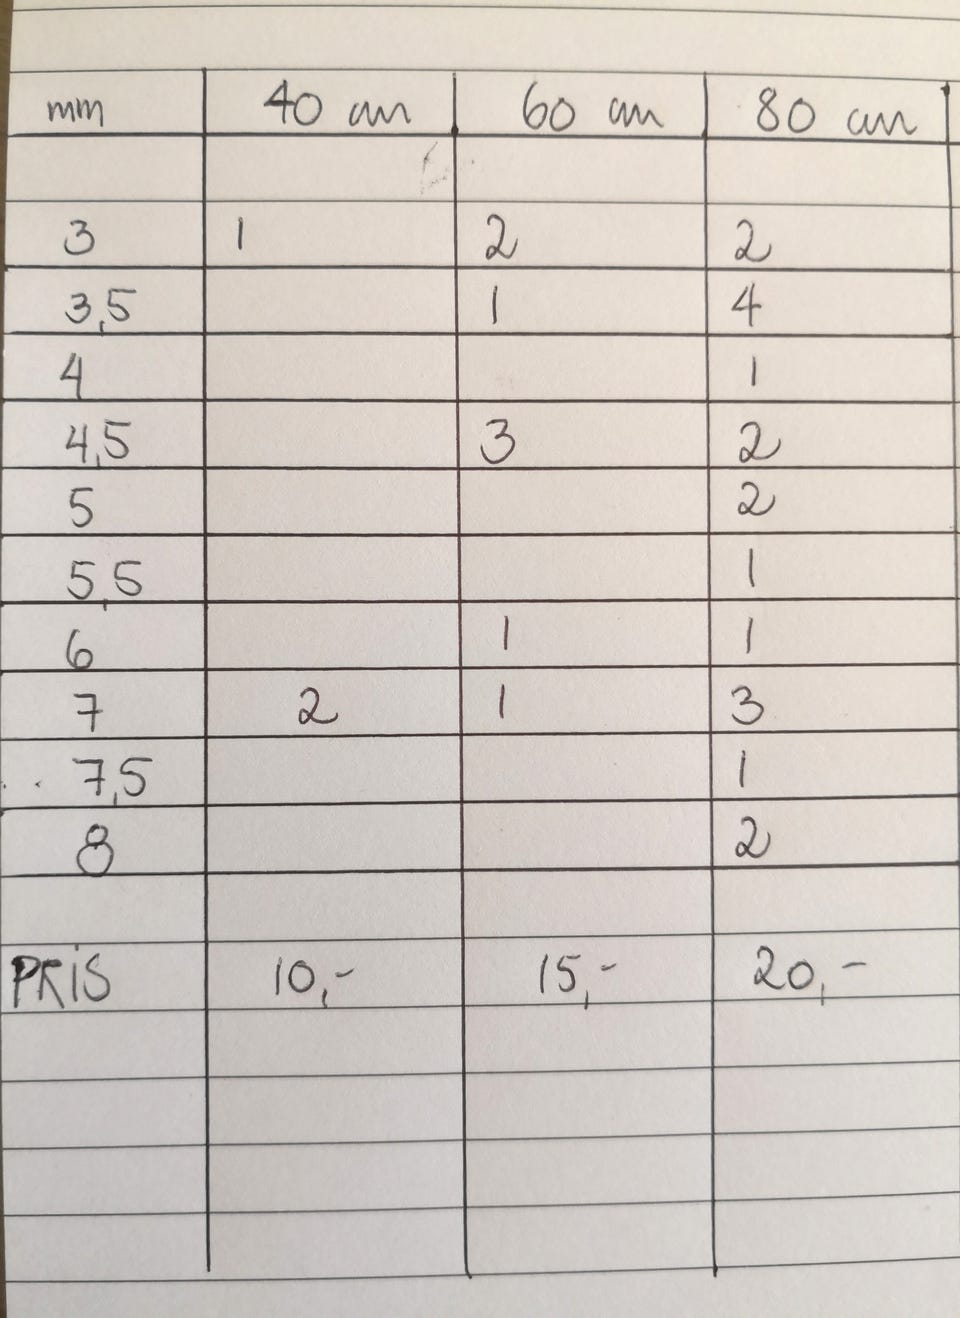 mm 40 cm 60 cm 80 cm
3 1 2 2
3,5 1 4
4 1
4,5 3 2
5 2
5,5 1
6 1 1
7 2 1 3
7,5 1
8 2
PRiS 10,- 15,- 20,-